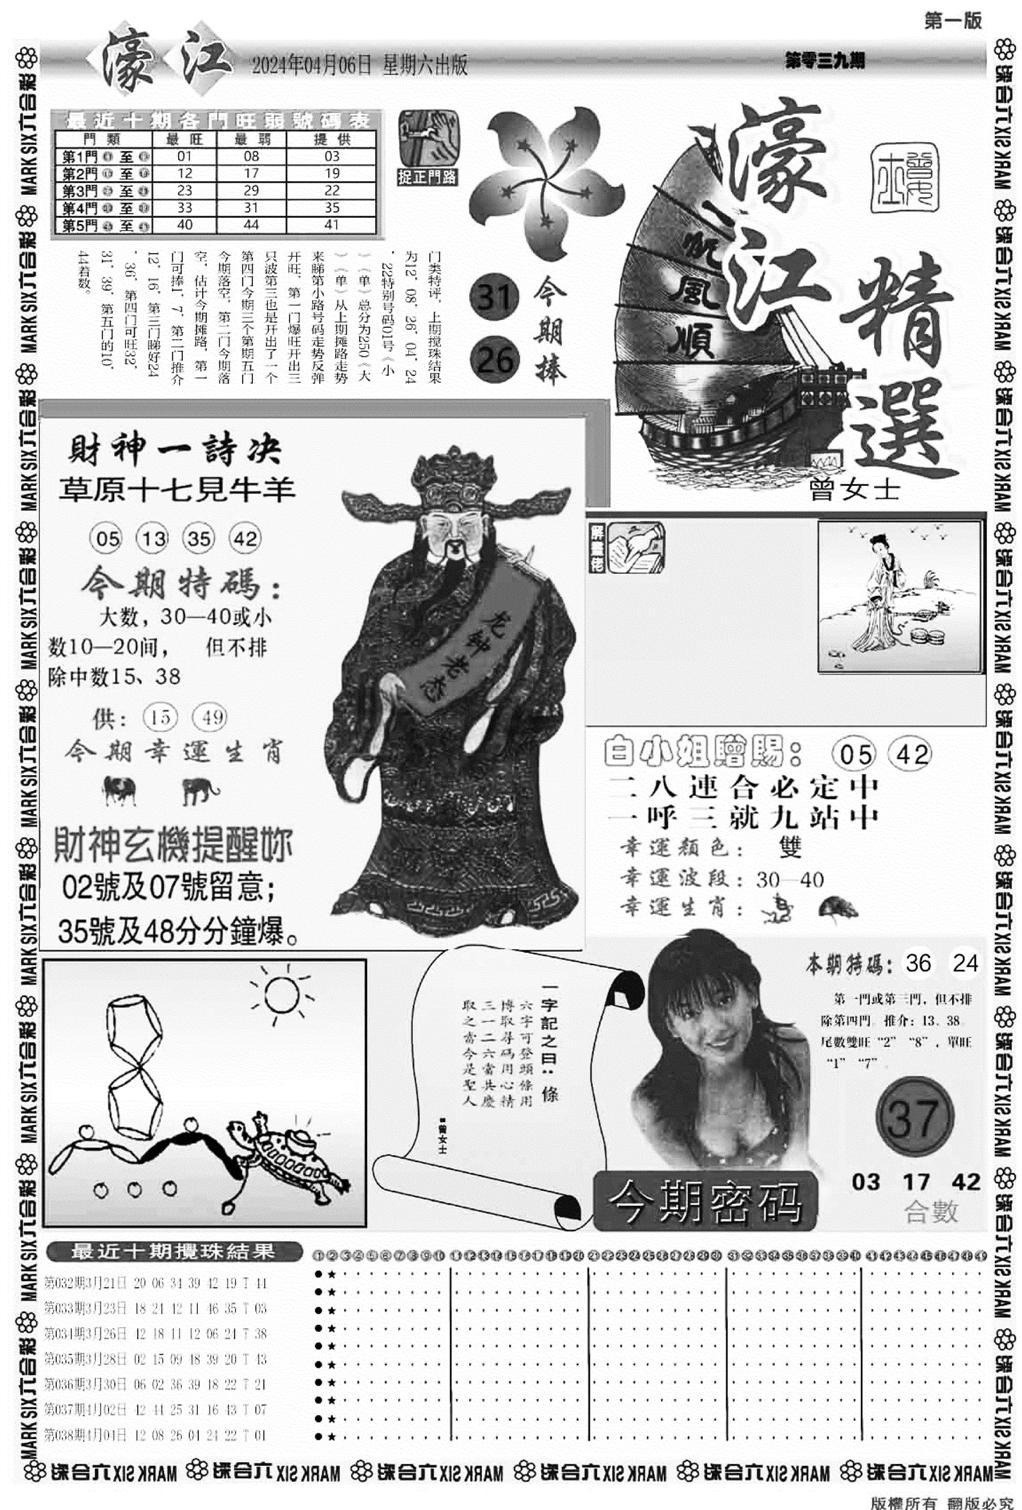 第一版
濠江
2024年04月06日 星期六出版
第零三九期
最近十期各門旺弱號碼表
門類 最旺 最弱 提供
第1門 至 01 08 03
第2門 至 12 17 19
第3門 至 23 29 22
第4門 至 33 31 35
第5門 至 40 44 41
捉正門路
门类特评，上期搅珠结果
为12，08，26，04，24
，22特别号码01号（小
）（单）总分为250（大
）（单）从上期摊路走势
来睇第小路号码走势反弹
开旺，第一门爆旺开出三
只波第三也是开出了一个
第四门今期三个第期五门
今期落空，第二门今期落
空，估计今期摊路，第一
门可捧1，7，第二门推介
12，16，第三门睇好24
，36，第四门可旺32，
31，39，第五门的10，
44着数。
31
26
今期捧
一帆風順
濠江
精選
曾女士
財神一詩决
草原十七見牛羊
05 13 35 42
今期特碼：
大数，30—40或小
数10—20间， 但不排
除中数15、38
供： 15 49
今期幸運生肖
財神玄機提醒妳
02號及07號留意；
35號及48分分鐘爆。
龙钟老态
解畫佬
白小姐贈賜： 05 42
二八連合必定中
一呼三就九站中
幸運顏色： 雙
幸運波段：30—40
幸運生肖：
一字記之曰：條
六字可登頭條用
博取尋碼用心精
三一二六當共慶
取之當今是聖人
曾女士
本期特碼：36 24
第一門或第三門，但不排
除第四門。推介：13、38。
尾數雙旺“2”“8”，單旺
“1”“7”。
37
03 17 42
合數
今期密码
最近十期攪珠結果
①②③④⑤⑥⑦⑧⑨⑩⑪⑫⑬⑭⑮⑯⑰⑱⑲⑳㉑㉒㉓㉔㉕㉖㉗㉘㉙㉚㉛㉜㉝㉞㉟㊱㊲㊳㊴㊵㊶㊷㊸㊹㊺㊻㊼㊽㊾
第032期3月21日 20 06 34 39 42 19 T 44
第033期3月23日 18 21 42 11 46 35 T 03
第034期3月26日 42 18 11 12 06 24 T 38
第035期3月28日 02 15 09 48 39 20 T 43
第036期3月30日 06 02 36 39 48 22 T 21
第037期4月02日 42 44 25 31 16 43 T 07
第038期4月04日 12 08 26 04 24 22 T 01
MARK SIX六合彩
版權所有 翻版必究